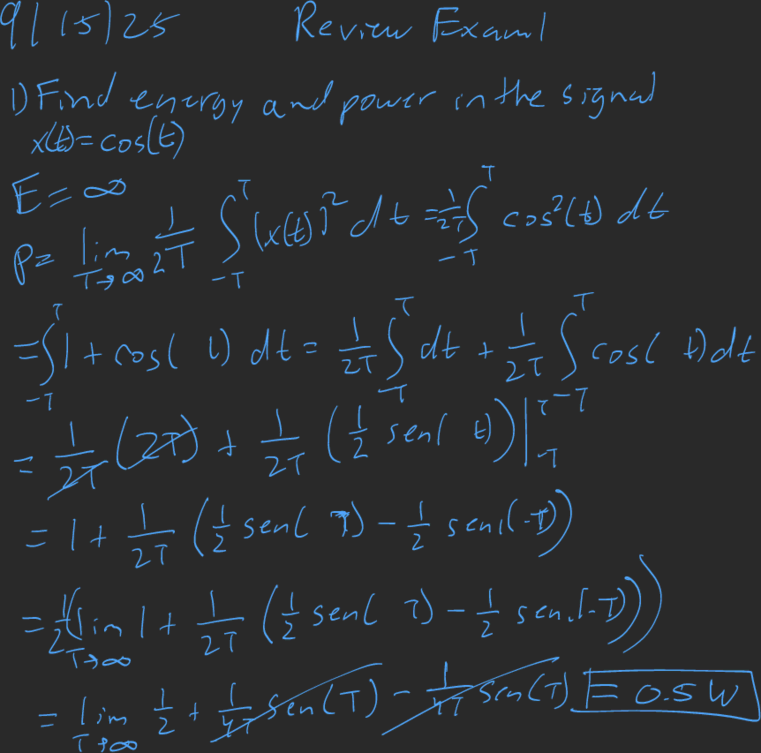 9/15/25 Review Exam 1
1) Find energy and power in the signal
x(t)=cos(t)
E=∞
P= lim T→∞ 1/2T ∫_{-T}^{T} (x(t))² dt = 1/2T ∫_{-T}^{T} cos²(t) dt
= ∫_{-T}^{T} 1 + cos( t) dt = 1/2T ∫_{-T}^{T} dt + 1/2T ∫_{-T}^{T} cos( t) dt
= 1/2T (2T) + 1/2T (1/2 sen( t)) |_{-T}^{T}
= 1 + 1/2T (1/2 sen( T) - 1/2 sen(-T))
= 1/2 (lim T→∞ 1 + 1/2T (1/2 sen( T) - 1/2 sen(-T)))
= lim T→∞ 1/2 + 1/4T sen(T) - 1/4T sen(T) = 0.5 W